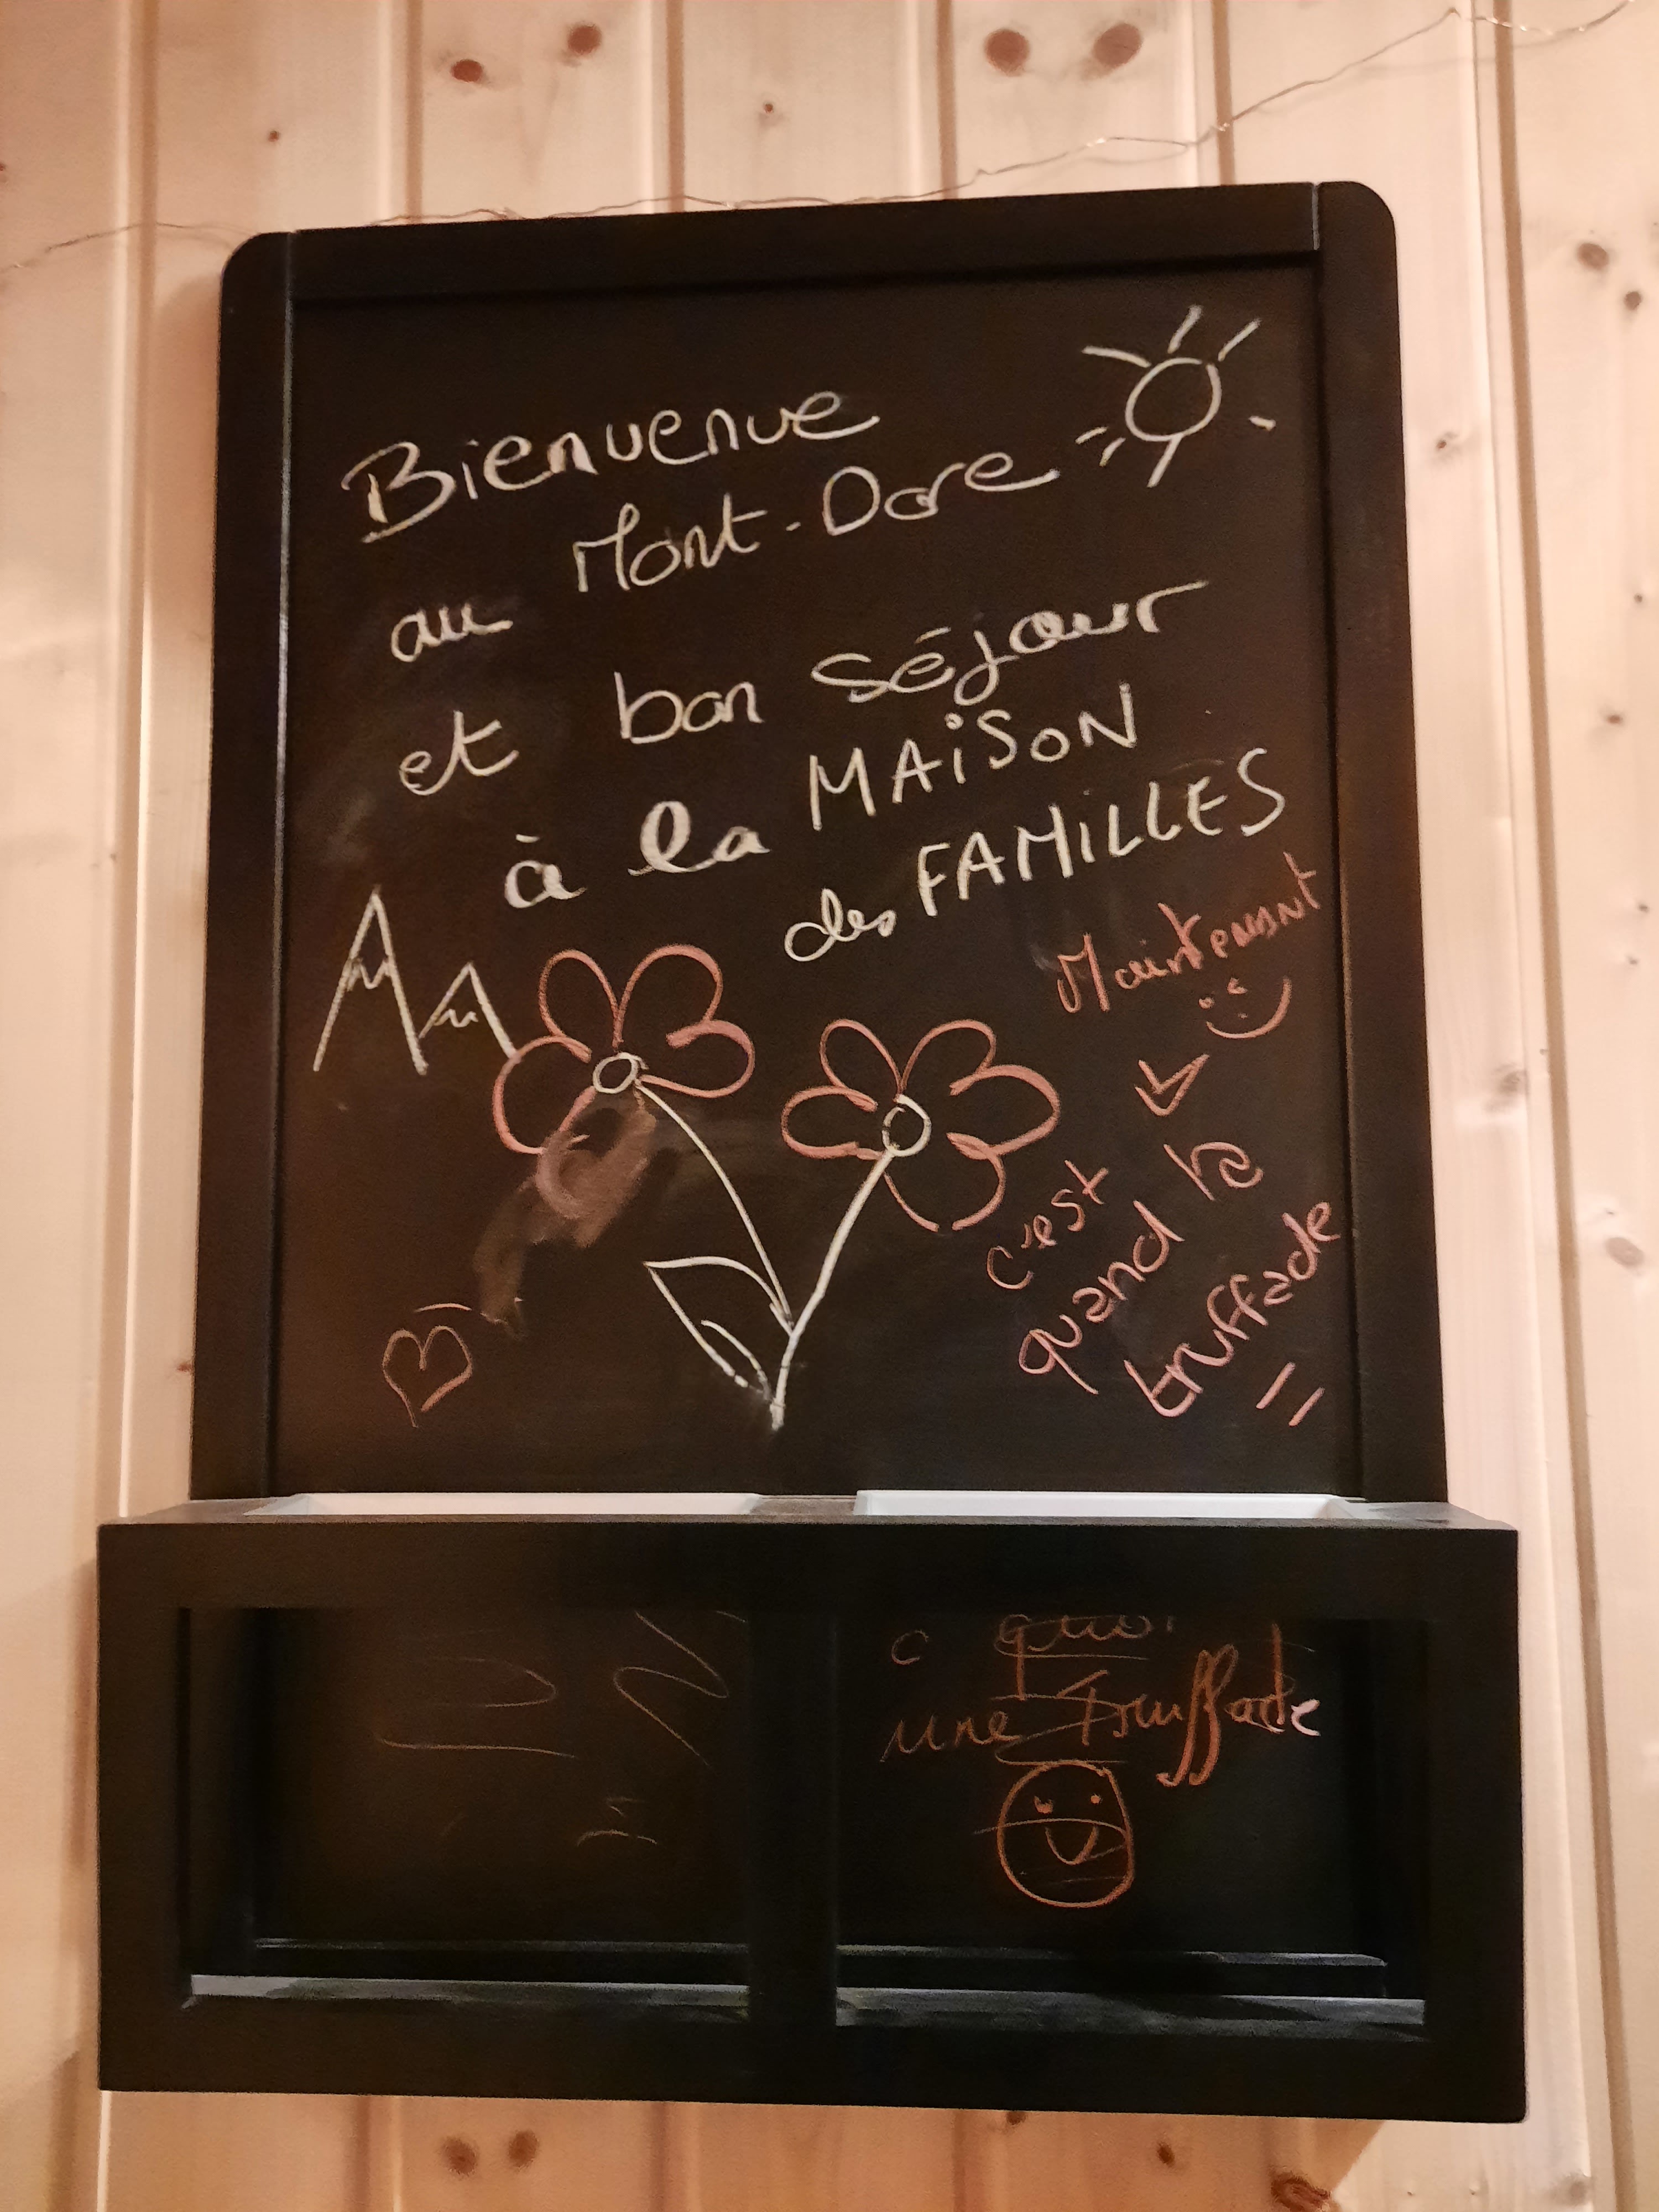 Bienvenue
au Mont-Dore
et bon séjour
à la MAiSON
des FAMiLLES
Maintenant
c'est
quand la
truffade
c quoi
une truffade